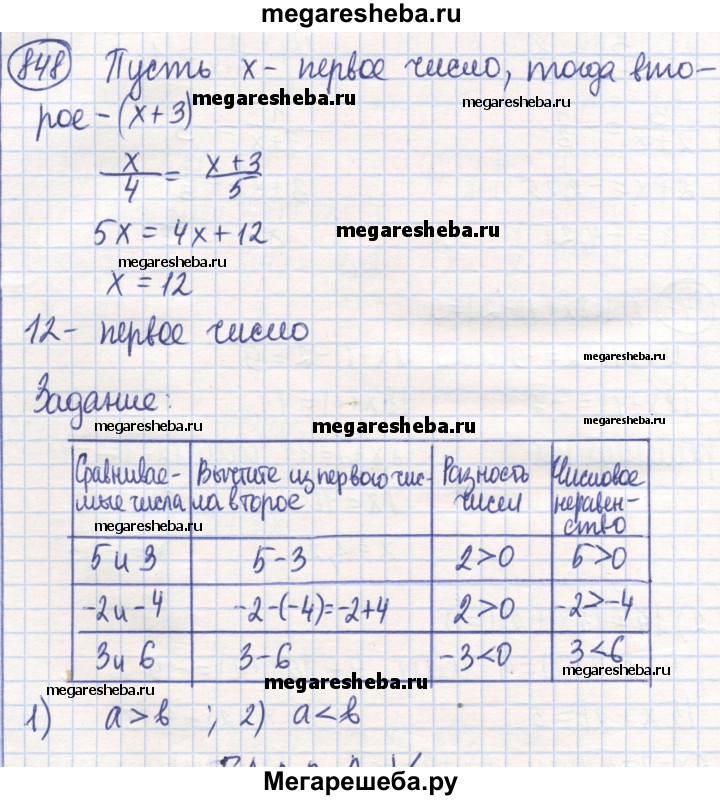 megaresheba.ru
848 Пусть x - первое число, тогда вто-
megaresheba.ru megaresheba.ru
рое - (x+3)
x/4 = (x+3)/5
5x = 4x + 12
megaresheba.ru
megaresheba.ru
x = 12
12 - первое число
megaresheba.ru
Задание:
megaresheba.ru megaresheba.ru megaresheba.ru
Сравнивае- Вычтите из первого чис- Разность Числовое
мые числа ла второе чисел неравен-
megaresheba.ru
ство
5 и 3 5-3 2>0 5>0
-2 и -4 -2-(-4)=-2+4 2>0 -2>-4
3 и 6 3-6 -3<0 3<6
megaresheba.ru megaresheba.ru megaresheba.ru
1) a>b ; 2) a<b
megaresheba.ru
Мегарешеба.ру